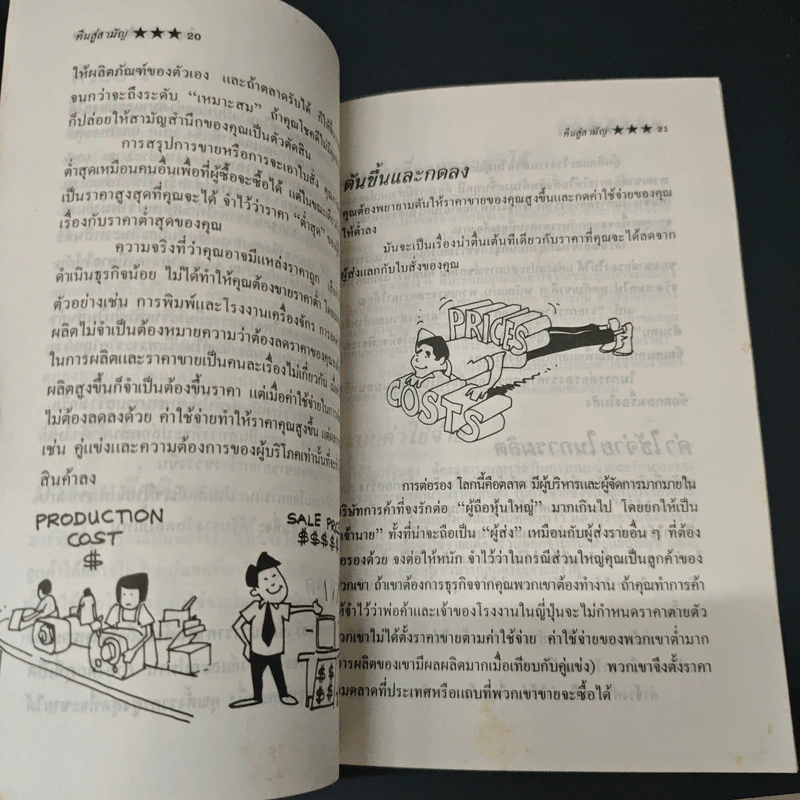 คืนสู่สามัญ ★★★ 20
ให้ผลิตภัณฑ์ของตัวเอง และถ้าตลาดรับได้
จนกว่าจะถึงระดับ “เหมาะสม” ถ้าคุณโชคดี
ก็ปล่อยให้สามัญสำนึกของคุณเป็นตัวตัดสิน
การสรุปการขายหรือการจะเอาใบสั่ง
ต่ำสุดเหมือนคนอื่นเพื่อที่ผู้ซื้อจะซื้อได้
เป็นราคาสูงสุดที่คุณจะได้ จำไว้ว่าราคา “ต่ำสุด”
เรื่องกับราคาต่ำสุดของคุณ
ความจริงที่ว่าคุณอาจมีแหล่งราคาถูก
ดำเนินธุรกิจน้อย ไม่ได้ทำให้คุณต้องขายราคาต่ำ
ตัวอย่างเช่น การพิมพ์และโรงงานเครื่องจักร
ผลิตไม่จำเป็นต้องหมายความว่าต้องลดราคาของคุณ
ในการผลิตและราคาขายเป็นคนละเรื่องไม่เกี่ยวกัน
ผลิตสูงขึ้นก็จำเป็นต้องขึ้นราคา แต่เมื่อค่าใช้จ่ายในการ
ไม่ต้องลดลงด้วย ค่าใช้จ่ายทำให้ราคาคุณสูงขึ้น
เช่น คู่แข่งและความต้องการของผู้บริโภคเท่านั้นที่จะ
สินค้าลง
PRODUCTION
COST
$
SALE
$$$$
คืนสู่สามัญ ★★★ 21
ดันขึ้นและกดลง
คุณต้องพยายามดันให้ราคาขายของคุณสูงขึ้นและกดค่าใช้จ่ายของคุณ
ให้ต่ำลง
มันจะเป็นเรื่องน่าตื่นเต้นทีเดียวกับราคาที่คุณจะได้ลดจาก
ผู้ส่งแลกกับใบสั่งของคุณ
PRICES
COSTS
การต่อรอง โลกนี้คือตลาด มีผู้บริหารและผู้จัดการมากมายใน
บริษัทการค้าที่จงรักต่อ “ผู้ถือหุ้นใหญ่” มากเกินไป โดยยกให้เป็น
“เจ้านาย” ทั้งที่น่าจะถือเป็น “ผู้ส่ง” เหมือนกับผู้ส่งรายอื่น ๆ ที่ต้อง
ต่อรองด้วย จงต่อให้หนัก จำไว้ว่าในกรณีส่วนใหญ่คุณเป็นลูกค้าของ
พวกเขา ถ้าเขาต้องการธุรกิจจากคุณพวกเขาต้องทำงาน ถ้าคุณทำการค้า
ให้จำไว้ว่าพ่อค้าและเจ้าของโรงงานในญี่ปุ่นจะไม่กำหนดราคาตายตัว
พวกเขาไม่ได้ตั้งราคาขายตามค่าใช้จ่าย ค่าใช้จ่ายของพวกเขาต่ำมาก
การผลิตของเขามีผลผลิตมากเมื่อเทียบกับคู่แข่ง) พวกเขาจึงตั้งราคา
ตามตลาดที่ประเทศหรือแถบที่พวกเขาขายจะซื้อได้